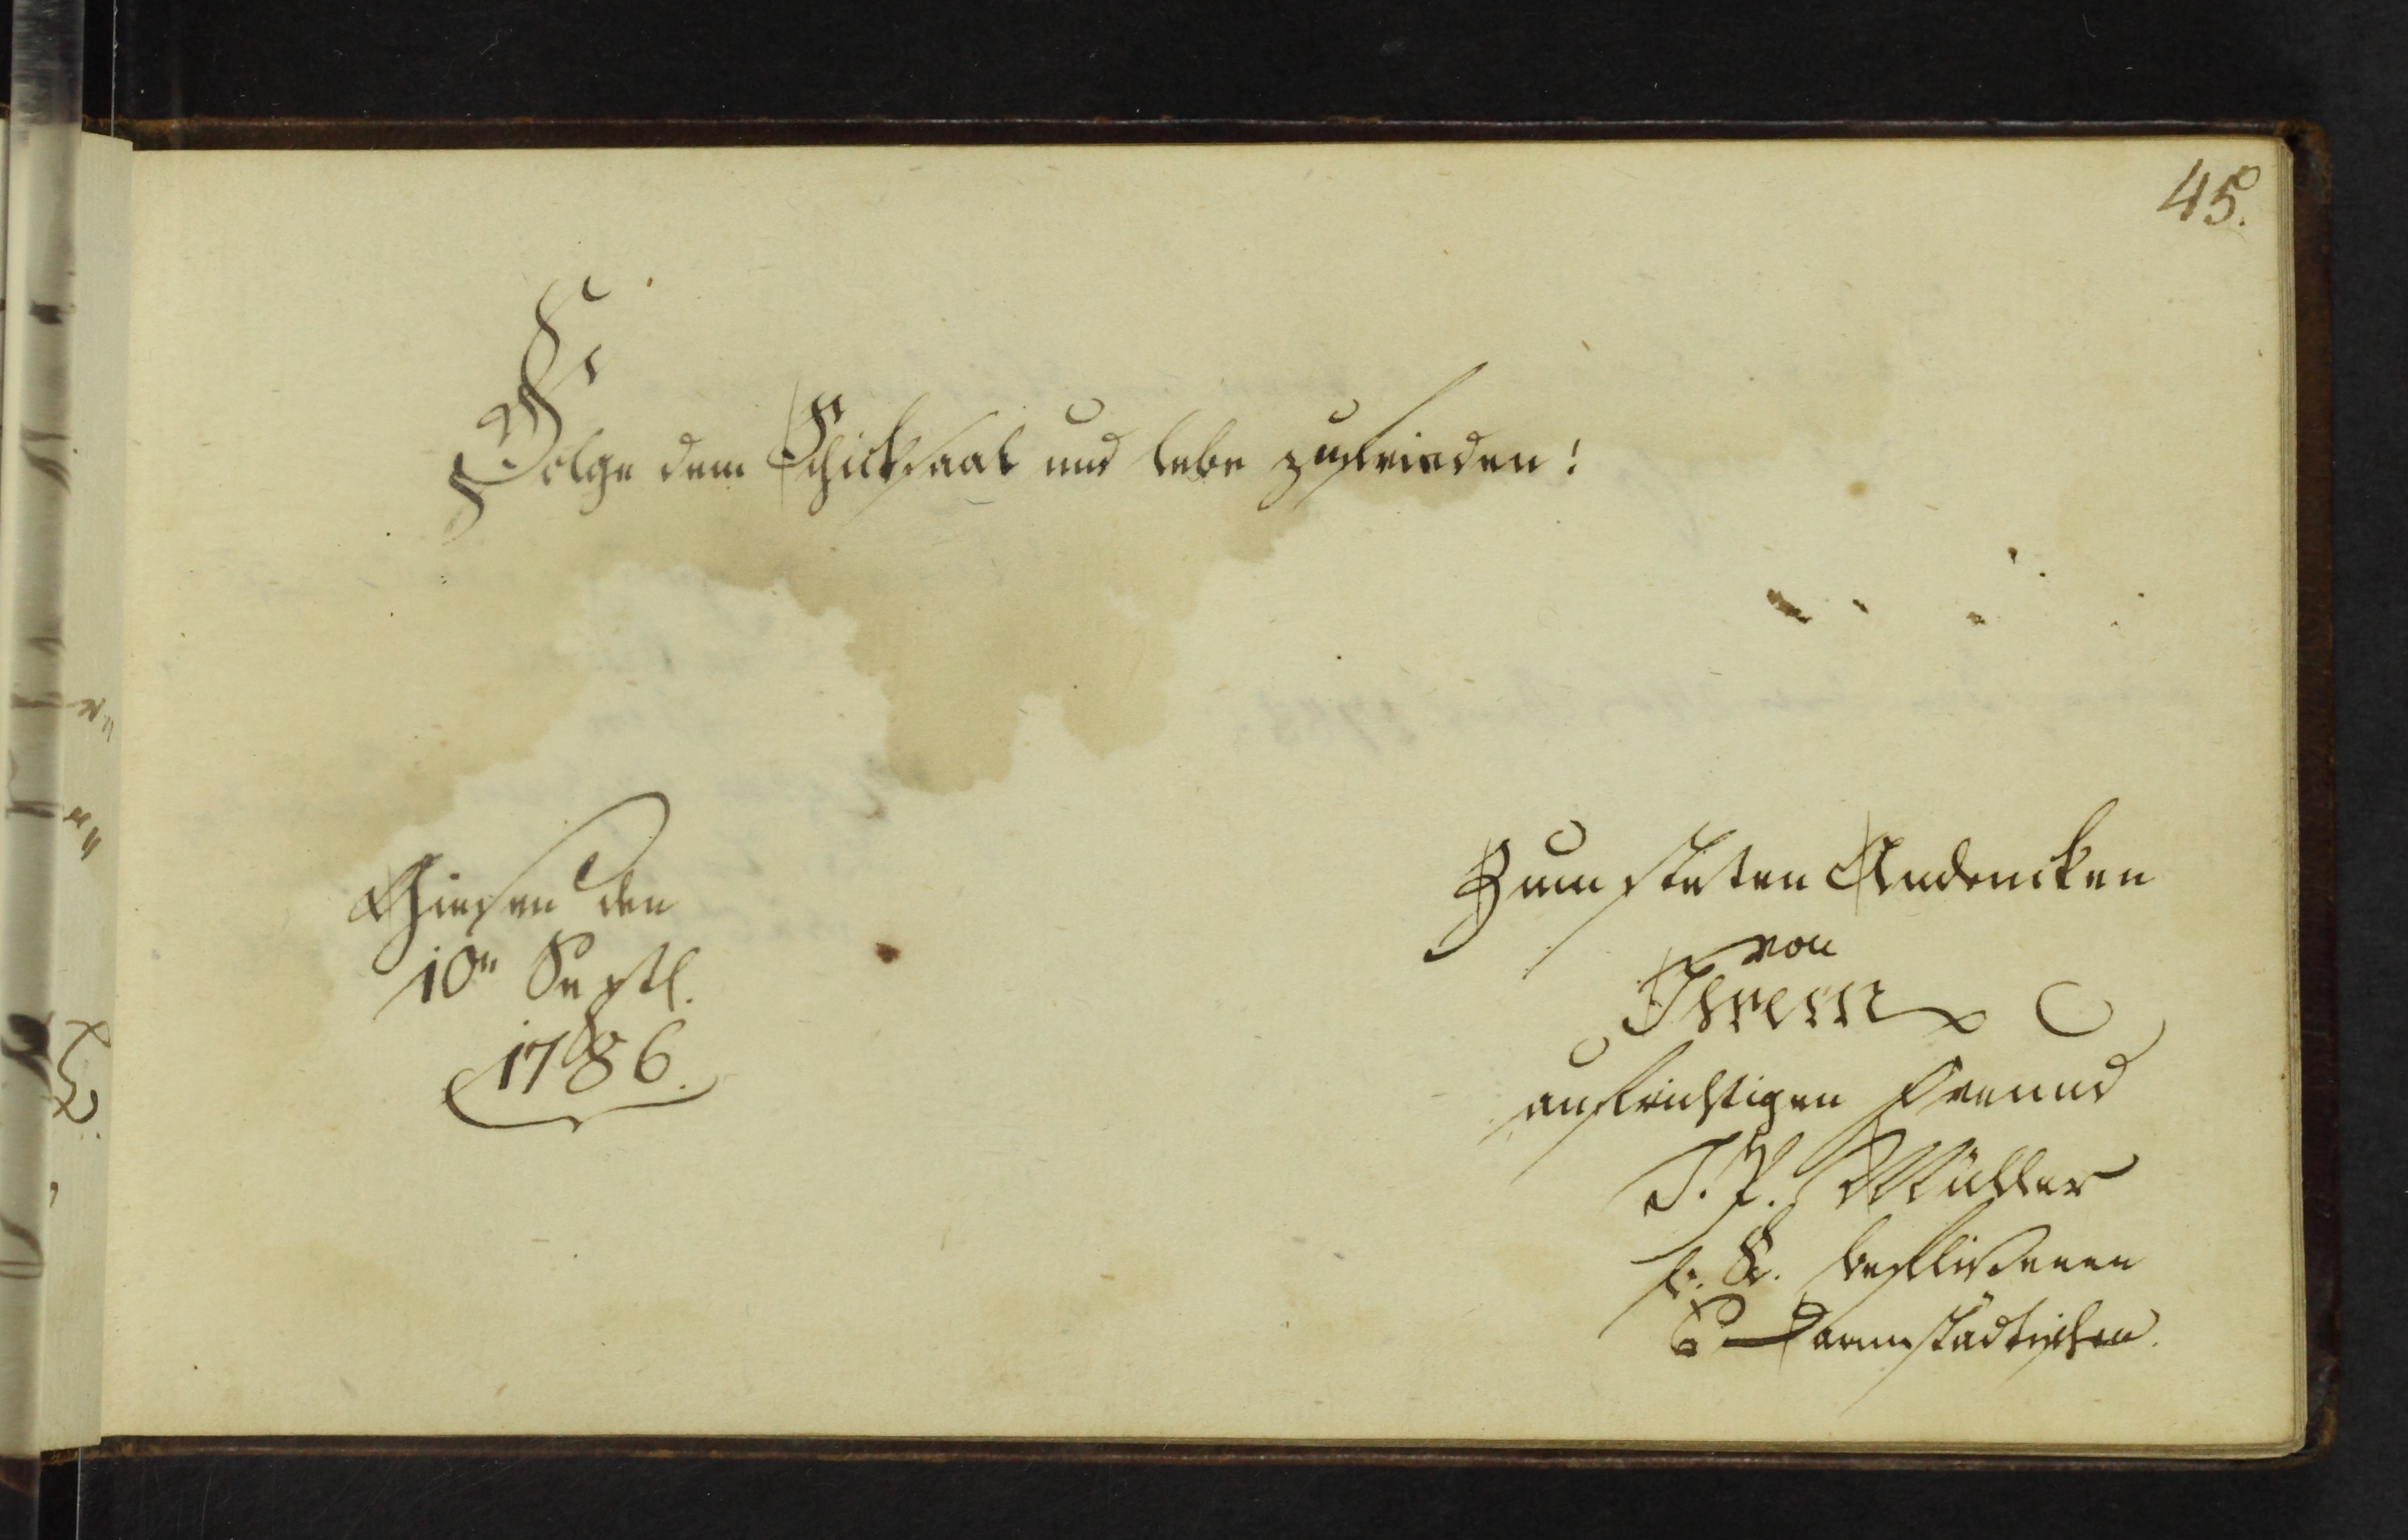 45.
Folge dem Schicksaal und lebe zufrieden!
Giesen den
10n Septb.
1786.
Zum steten Andencken
von
Ihrem
aufrichtigen Freund
J. P. Müller
beflissenen
Darmstädtischen.